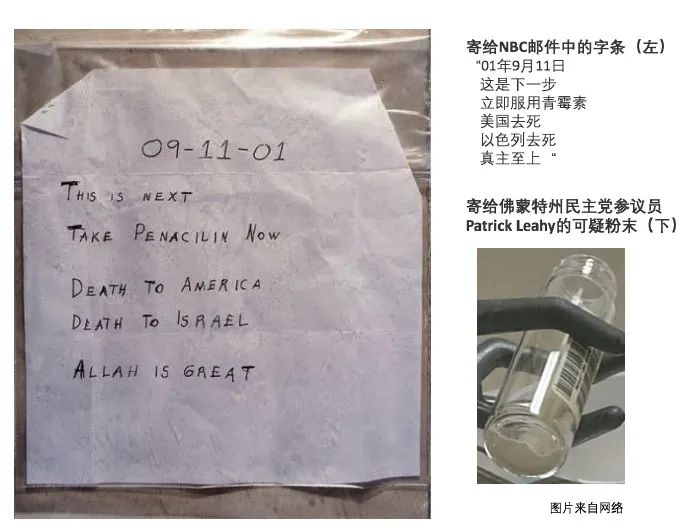 09-11-01
THIS IS NEXT
TAKE PENACILIN NOW
DEATH TO AMERICA
DEATH TO ISRAEL
ALLAH IS GREAT
寄给NBC邮件中的字条（左）
“01年9月11日
这是下一步
立即服用青霉素
美国去死
以色列去死
真主至上 “
寄给佛蒙特州民主党参议员
Patrick Leahy的可疑粉末（下）
图片来自网络